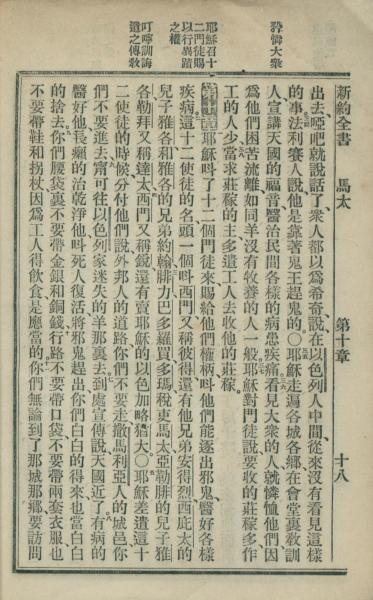 新約全書　馬太　第十章　十八
矜憐大衆
耶穌召十
二門徒賜
以行異蹟
之權
叮嚀訓誨
遣之傳敎
出去、啞吧就說話了、衆人都以爲希奇、說、在以色列人中間、從來沒有看見這樣
的事、法利賽人說、他是靠著鬼王趕鬼的、〇耶穌走遍各城各鄉、在會堂裏敎訓
人、宣講天國的福音、醫治民間各樣的病患疾痛、看見大衆的人、就憐恤他們、因
爲他們困苦流離、如同羊沒有牧養的人一般、耶穌對門徒說、要收的莊稼多、作
工的人少、當求莊稼的主、多遣工人去收他的莊稼、
第十章耶穌呌了十二個門徒來、賜給他們權柄、呌他們能逐出邪鬼、醫好各樣
疾病、這十二使徒的名、頭一個呌西門、又稱彼得、還有他兄弟安得烈、西庇太的
兒子雅各、和雅各的兄弟約翰、腓力、巴多羅買、多瑪、稅吏馬太、亞勒腓的兒子雅
各、勒拜又稱達太、西門又稱銳、還有賣耶穌的以色加畧猶大、〇耶穌差遣這十
二使徒的時候、分付他們說、外邦人的道路、你們不要走、撒馬利亞人的城邑、你
們不要進去、甯可往以色列家迷失的羊那裏去、到處宣傳說、天國近了、有病的
醫好他、長癩的治乾淨他、呌死人復活、將邪鬼趕出、你們白白的得來、也當白白
的捨去、你們腰袋裏、不要帶金銀和銅錢、行路不要帶口袋、不要帶兩套衣服、也
不要帶鞋和拐杖、因爲工人得飲食是應當的、你們無論到了那城那鄉、要訪問